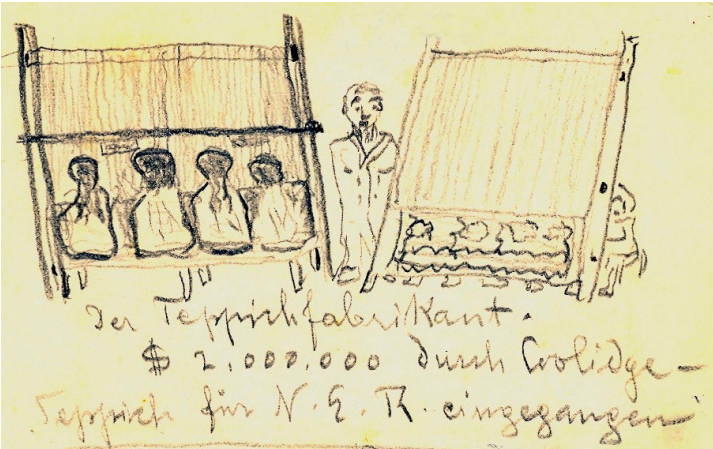 Der Teppichfabrikant.
$ 2.000.000 durch Coolidge-
Teppich für N. E. R. eingegangen